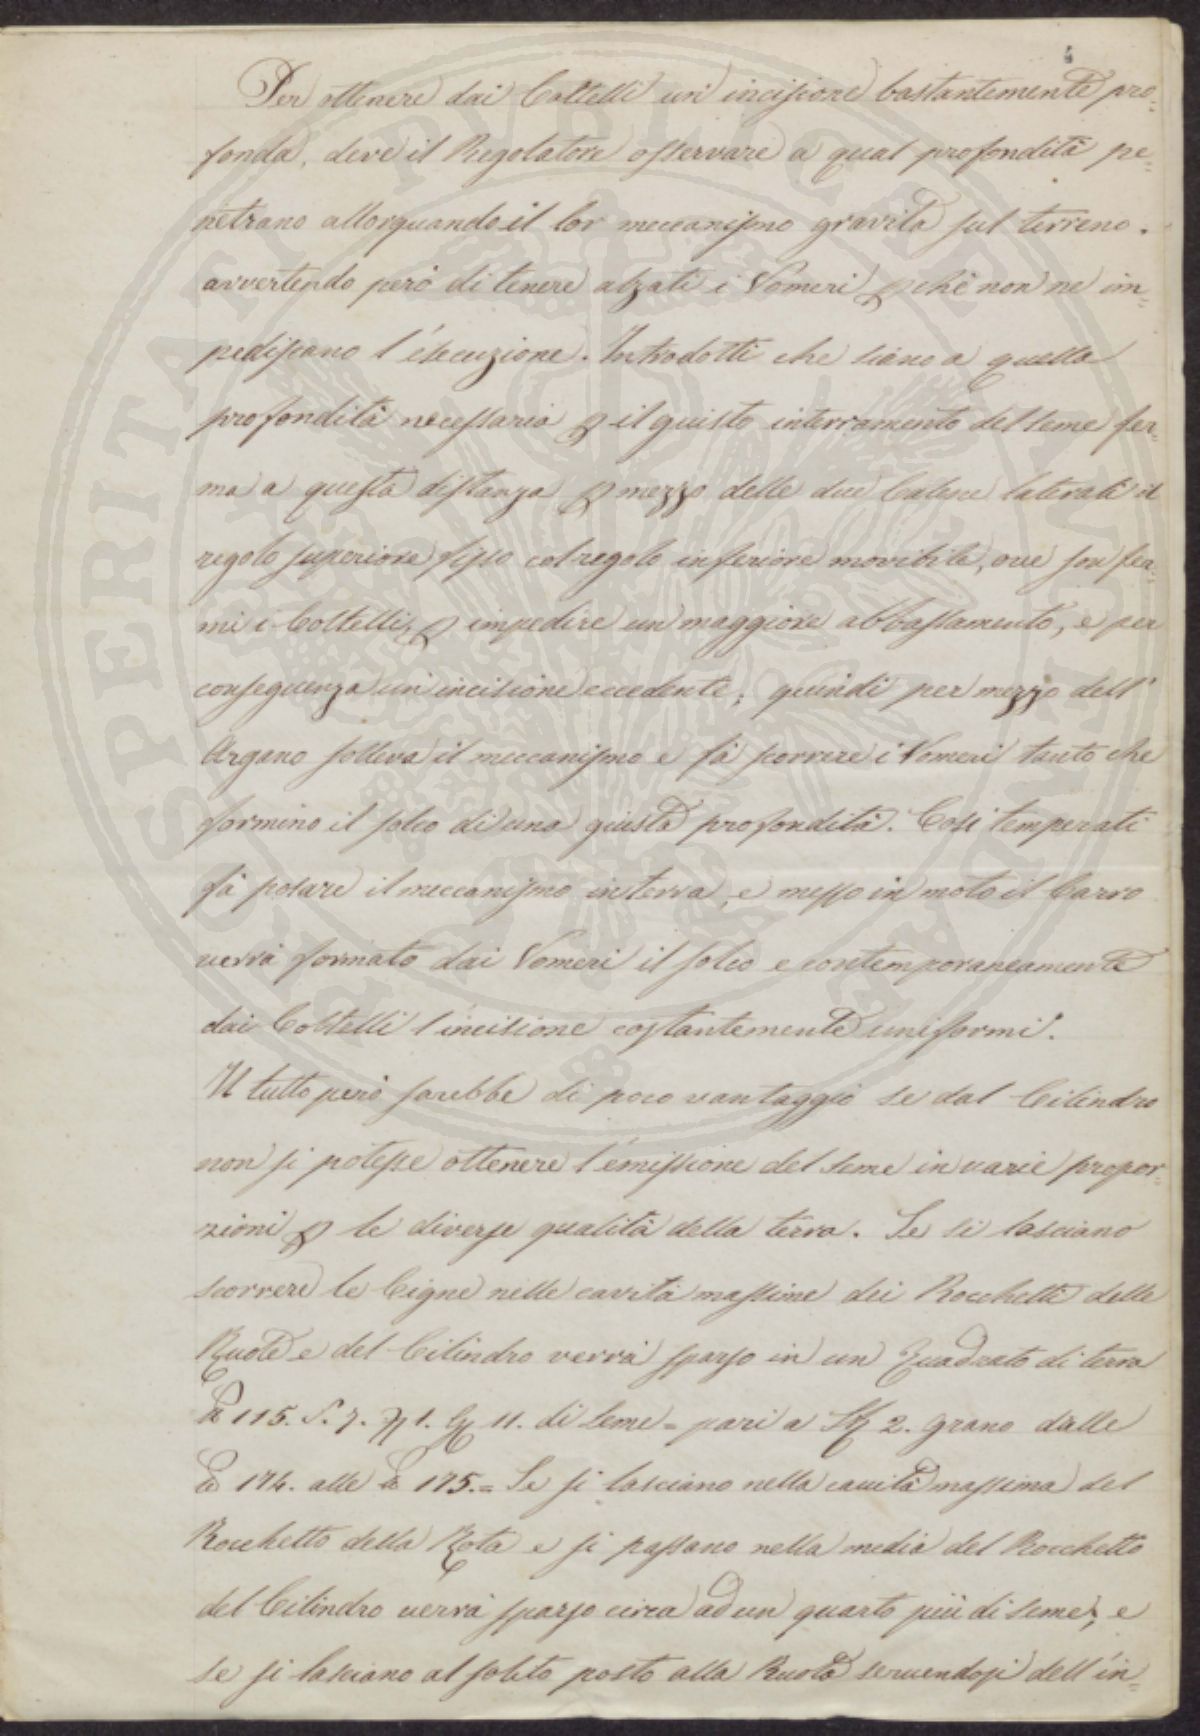 4
Per ottenere dai Coltelli un' incisione bastantemente pro=
fonda, deve il Regolatore osservare a qual profondità pe=
netrano allorquando il lor meccanismo gravita sul terreno.
avvertendo però di tenere alzati i Vomeri p chè non ne im=
pediscano l'esecuzione. Introdotti che siano a quella
profondità necessaria p il giusto interramento del seme fer=
ma a questa distanza p mezzo delle due laterali il
regolo superiore fisso col regolo inferiore movibile, ove son fer=
mi i Coltelli, p impedire un maggiore abbassamento, e per
conseguenza un' incisione eccedente; quindi per mezzo dell'
Argano solleva il meccanismo e fà scorrere i Vomeri tanto che
formino il solco di una giusta profondità. Così temperati
fà posare il meccanismo in terra, e messo in moto il Carro
verrà formato dai Vomeri il solco e contemporaneamente
dai Coltelli l'incisione costantemente uniformi.
Il tutto però sarebbe di poco vantaggio se dal Cilindro
non si potesse ottenere l'emissione del seme in varie propor=
zioni p le diverse qualità della terra. Se si lasciano
scorrere le Cigne nelle cavità massime dei Rocchetti delle
Ruote e del Cilindro verrà sparso in un Quadrato di terra
115. S. 7. 1. 11. di seme = pari a 2. grano dalle
174. alle 175. = Se si lasciano nella cavità massima del
Rocchetto della Rota e si passano nella media del Rocchetto
del Cilindro verrà sparso circa ad un quarto più di seme, e
se si lasciano al solito posto alla Ruota servendosi dell'in=
PUBLICAE
PROSPERITATI